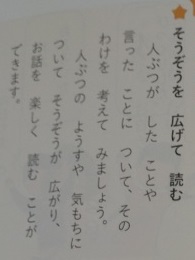 そうぞうを 広げて 読む
人ぶつが した ことや
言った ことに ついて、その
わけを 考えて みましょう。
人ぶつの ようすや 気もちに
ついて そうぞうが 広がり、
お話を 楽しく 読む ことが
できます。